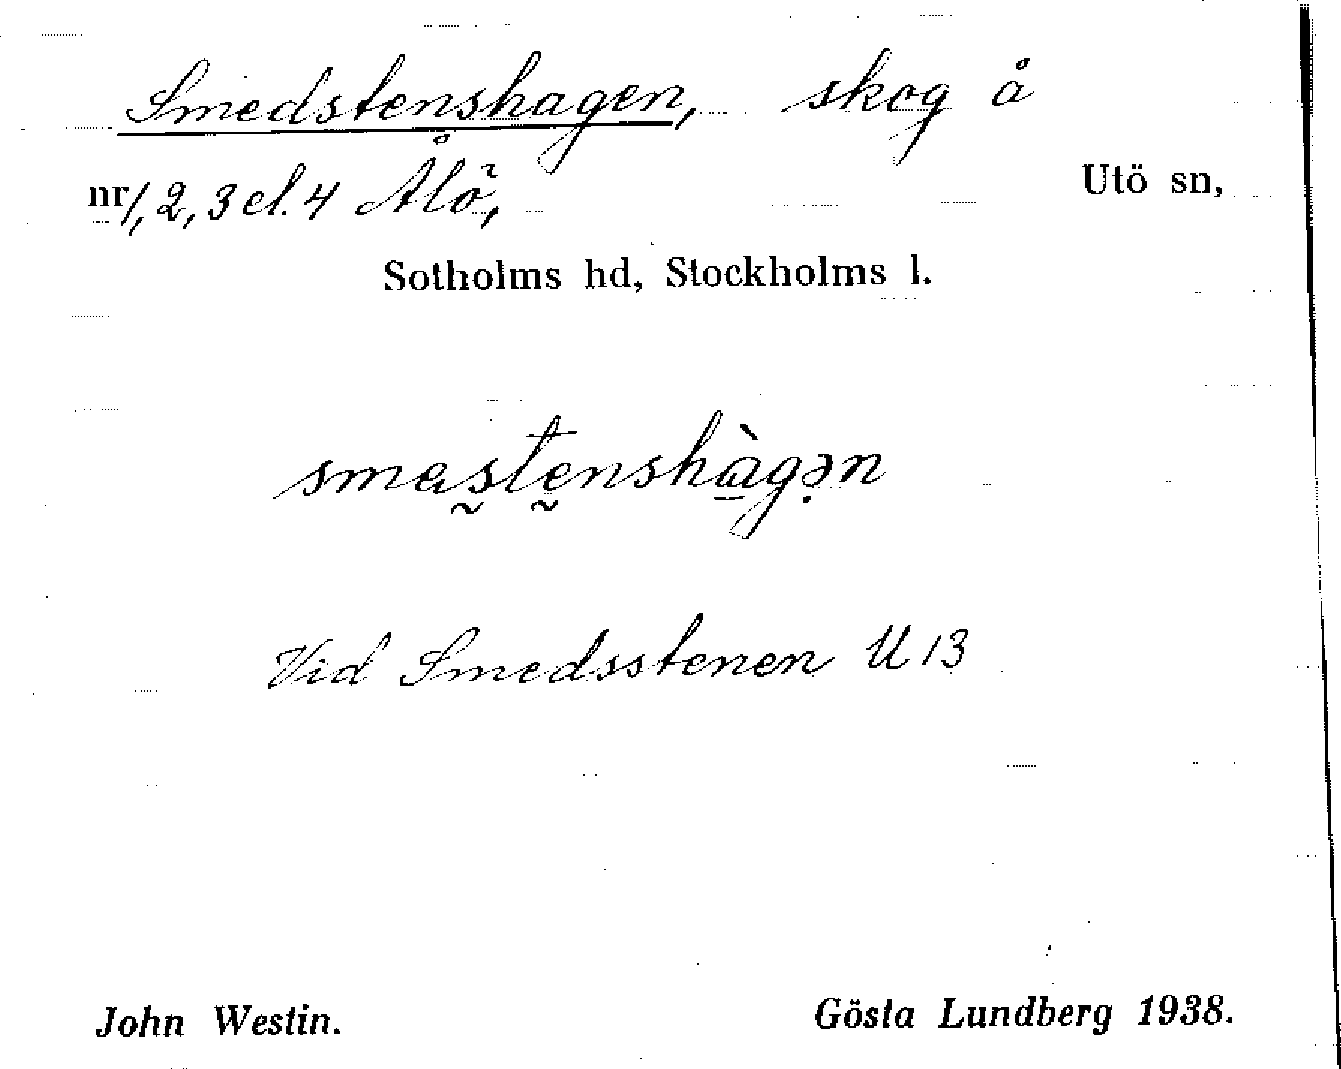 Smedstenshagen, skog å
nr 1, 2, 3 el. 4 Ålö, Utö sn,
Sotholms hd, Stockholms l.
smas̰tḛnshà̱gə̣n
Vid Smedsstenen U 13
John Westin. Gösta Lundberg 1938.